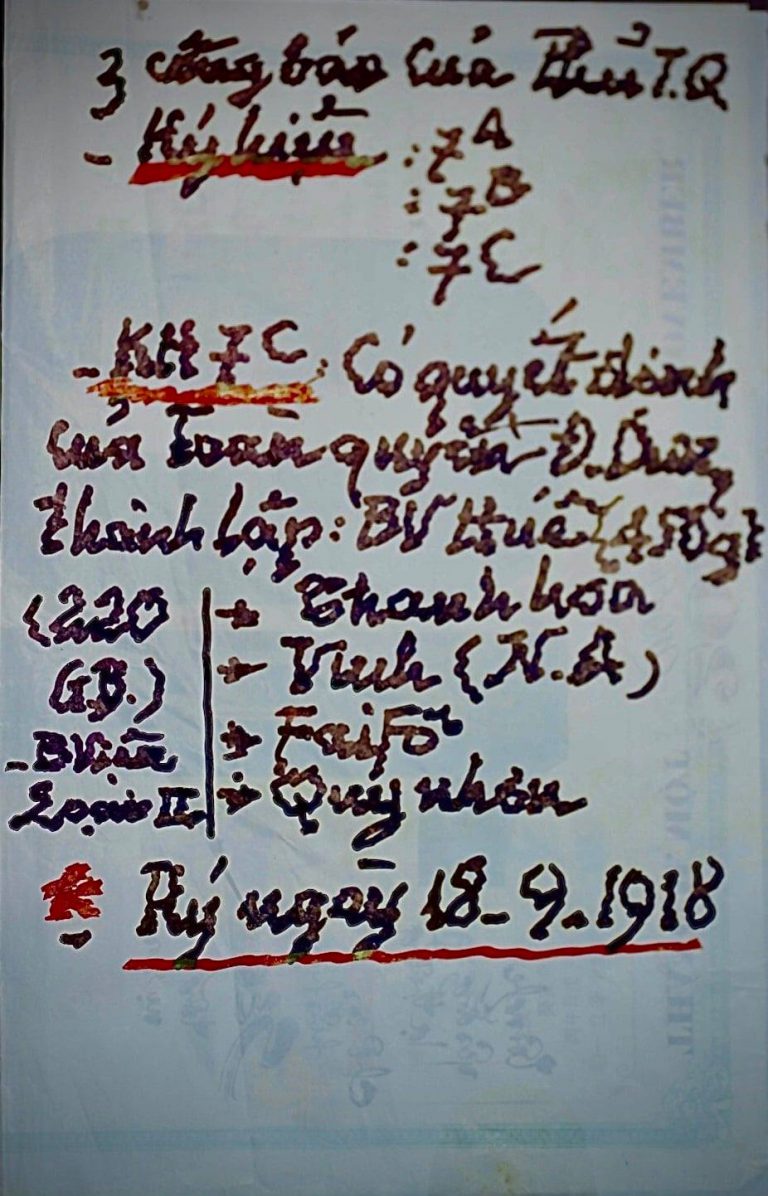 3 công báo của Phủ T.Q
- Ký hiệu : 7A
: 7B
: 7C
- KH 7C : Có quyết định
của Toàn quyền Đ. Dương
thành lập : BV Huế (450g)
(220 → Thanh hóa
G.B.) → Vinh (N.A)
- BViện → FaiFo
Loại II → Quy nhơn
* - Ký ngày 18-9-1918